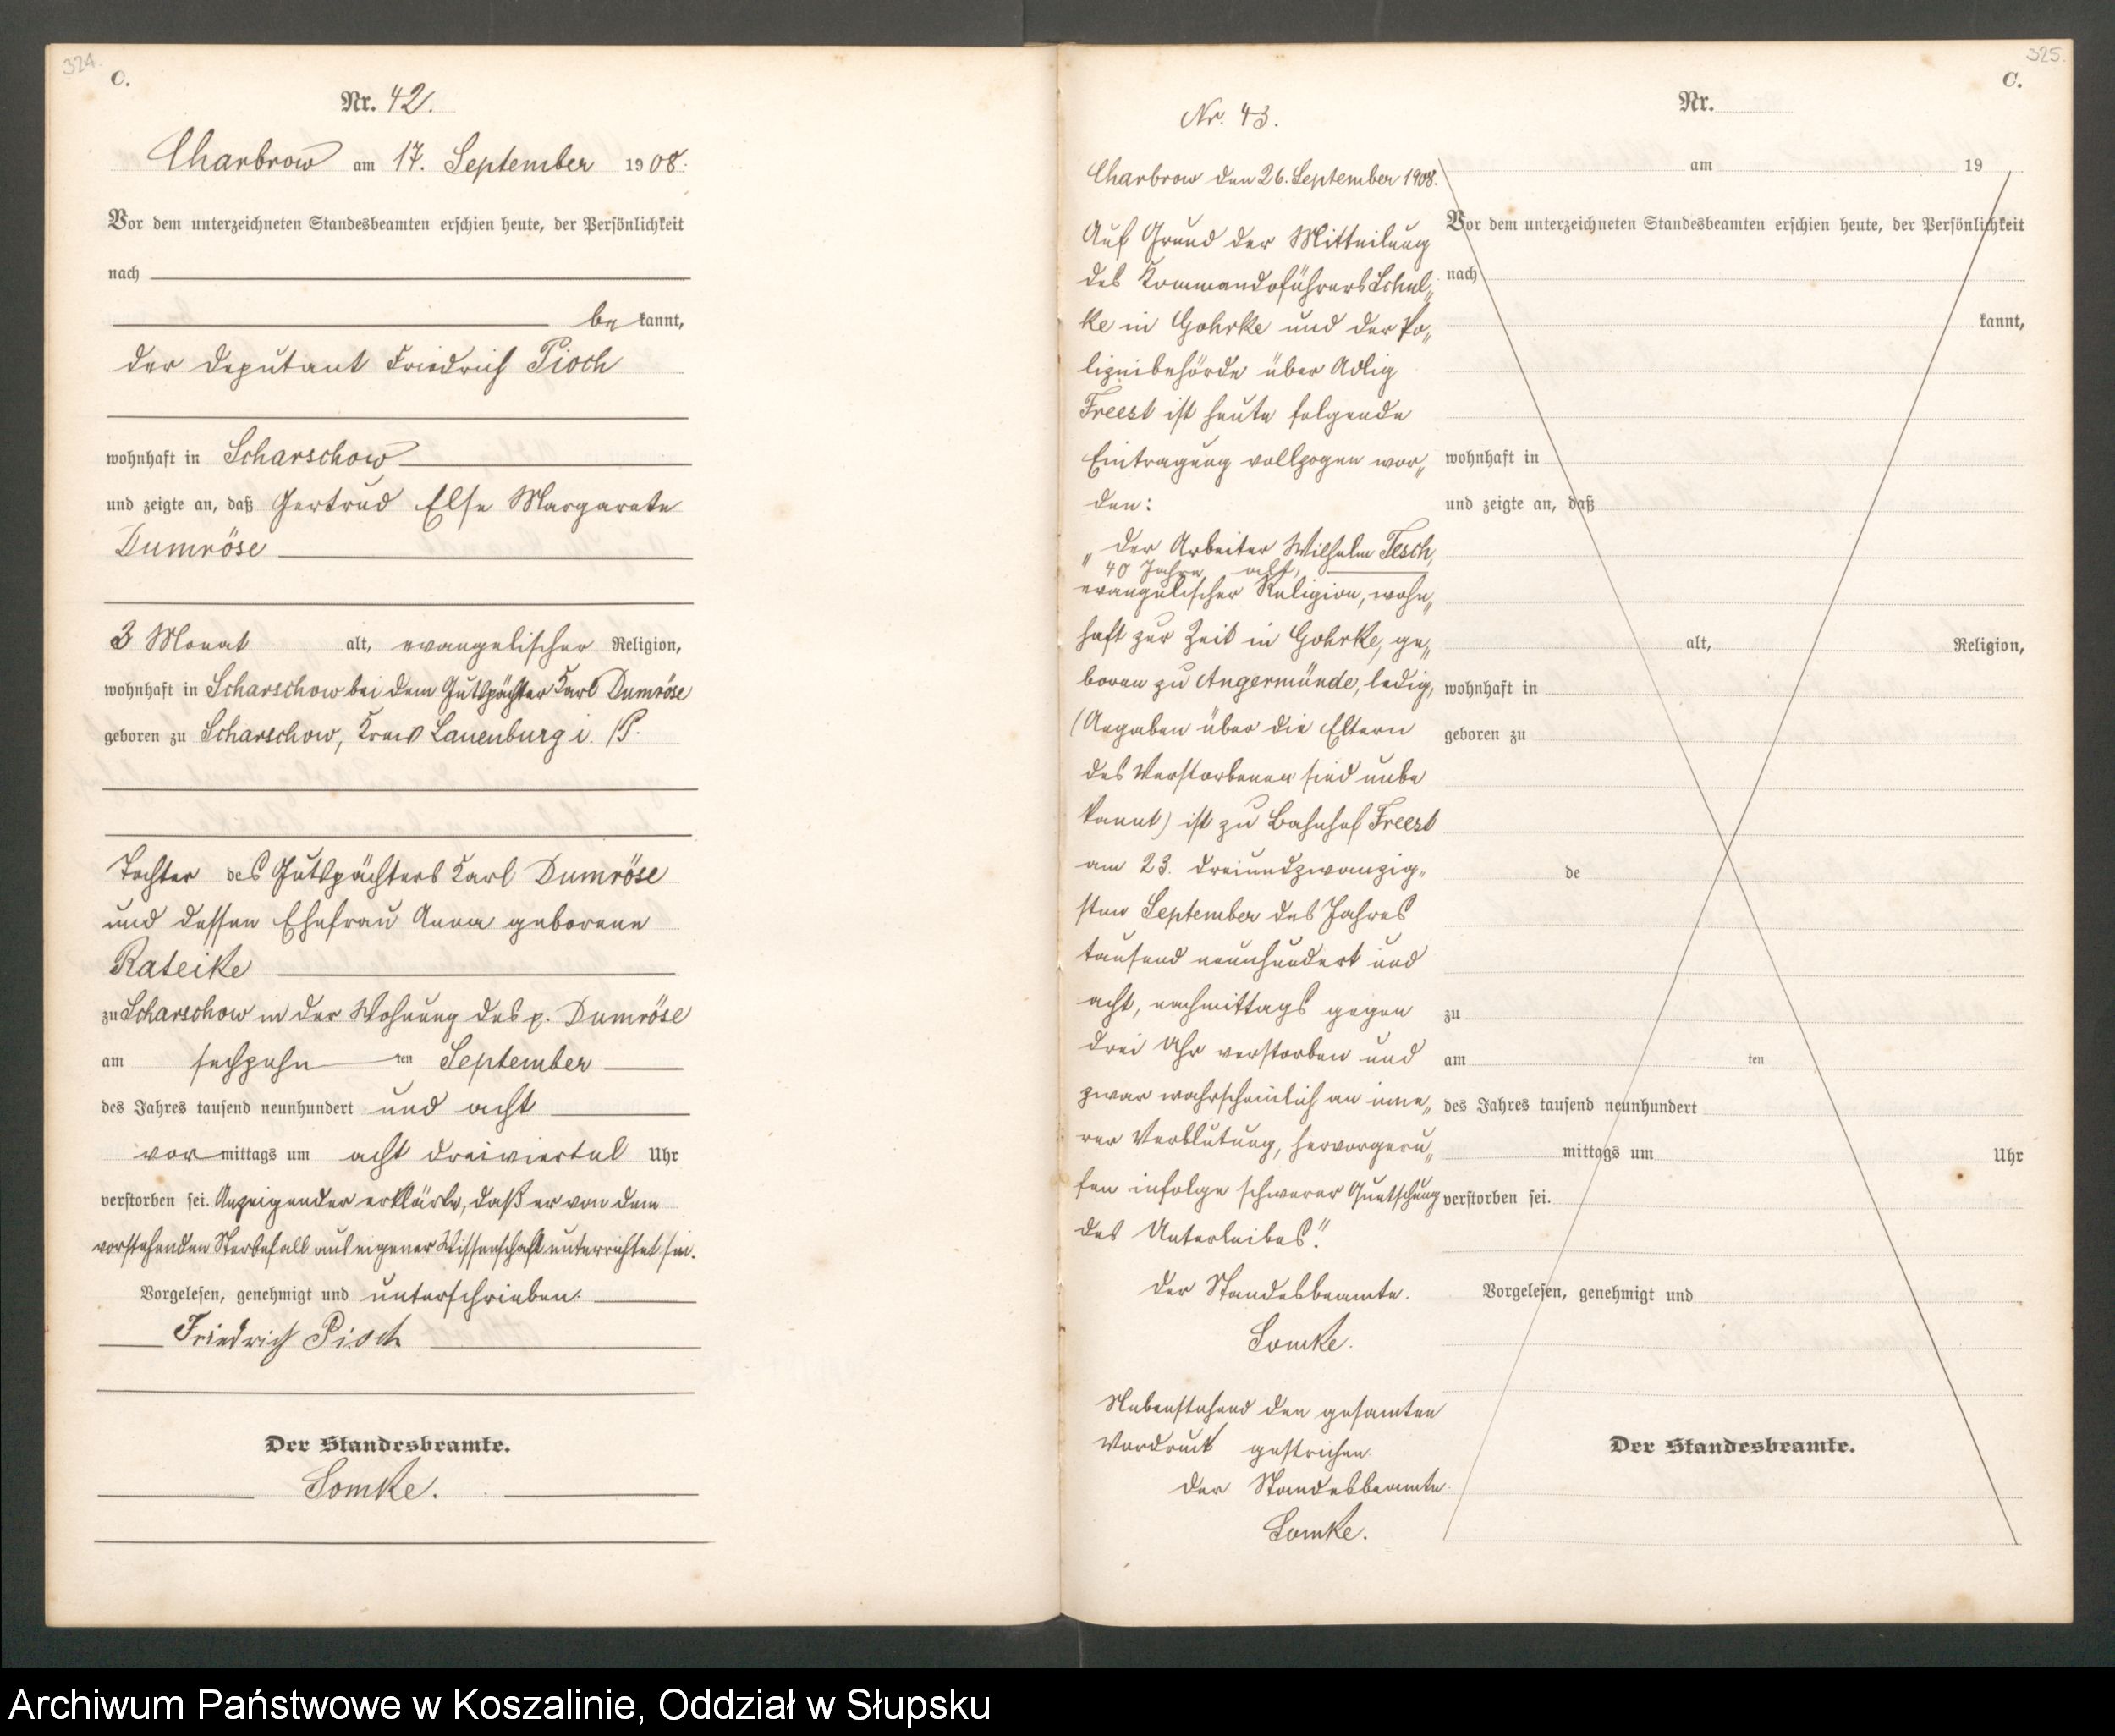 324.
C.
Nr. 42.
Charbrow am 17. September 1908.
Vor dem unterzeichneten Standesbeamten erschien heute, der Persönlichkeit
nach
be kannt,
der Deputant Friedrich Pioch
wohnhaft in Scharschow
und zeigte an, daß Gertrud Else Margarete
Dumröse
3 Monat alt, evangelischer Religion,
wohnhaft in Scharschow bei dem Gutspächter Karl Dumröse
geboren zu Scharschow, Kreis Lauenburg i. P.
Tochter des Gutspächters Karl Dumröse
und dessen Ehefrau Anna geborene
Rateike
zu Scharschow in der Wohnung des p. Dumröse
am sechzehn ten September
des Jahres tausend neunhundert und acht
vor mittags um acht dreiviertel Uhr
verstorben sei. Anzeigender erklärte, daß er von dem
vorstehenden Sterbefall aus eigener Wissenschaft unterrichtet sei.
Vorgelesen, genehmigt und unterschrieben.
Friedrich Pioch
Der Standesbeamte.
Somke.
325.
C.
Nr. 43.
Charbrow den 26. September 1908.
Auf Grund der Mitteilung
des Kommandoführers Schul„
ke in Gohrke und der Po„
lizeibehörde über Adlig
Freest ist heute folgende
Eintragung vollzogen wor„
den:
„Der Arbeiter Wilhelm Tesch,
40 Jahre alt,
evangelischer Religion, wohn„
haft zur Zeit in Gohrke, ge„
boren zu Angermünde, ledig,
(Angaben über die Eltern
des Verstorbenen sind unbe
kannt) ist zu Bahnhof Freest
am 23. dreiundzwanzig„
sten September des Jahres
tausend neunhundert und
acht, nachmittags gegen
drei Uhr verstorben und
zwar wahrscheinlich an inne„
rer Verblutung, hervorgeru„
fen infolge schwerer Quetschung
des Unterleibes".
Der Standesbeamte.
Somke.
Nebenstehend den gesamten
Vordruck gestrichen.
Der Standesbeamte.
Somke.
Nr.
am 19
Vor dem unterzeichneten Standesbeamten erschien heute, der Persönlichkeit
nach
kannt,
wohnhaft in
und zeigte an, daß
alt, Religion,
wohnhaft in
geboren zu
de
zu
am ten
des Jahres tausend neunhundert
mittags um Uhr
verstorben sei.
Vorgelesen, genehmigt und
Der Standesbeamte.
Archiwum Państwowe w Koszalinie, Oddział w Słupsku